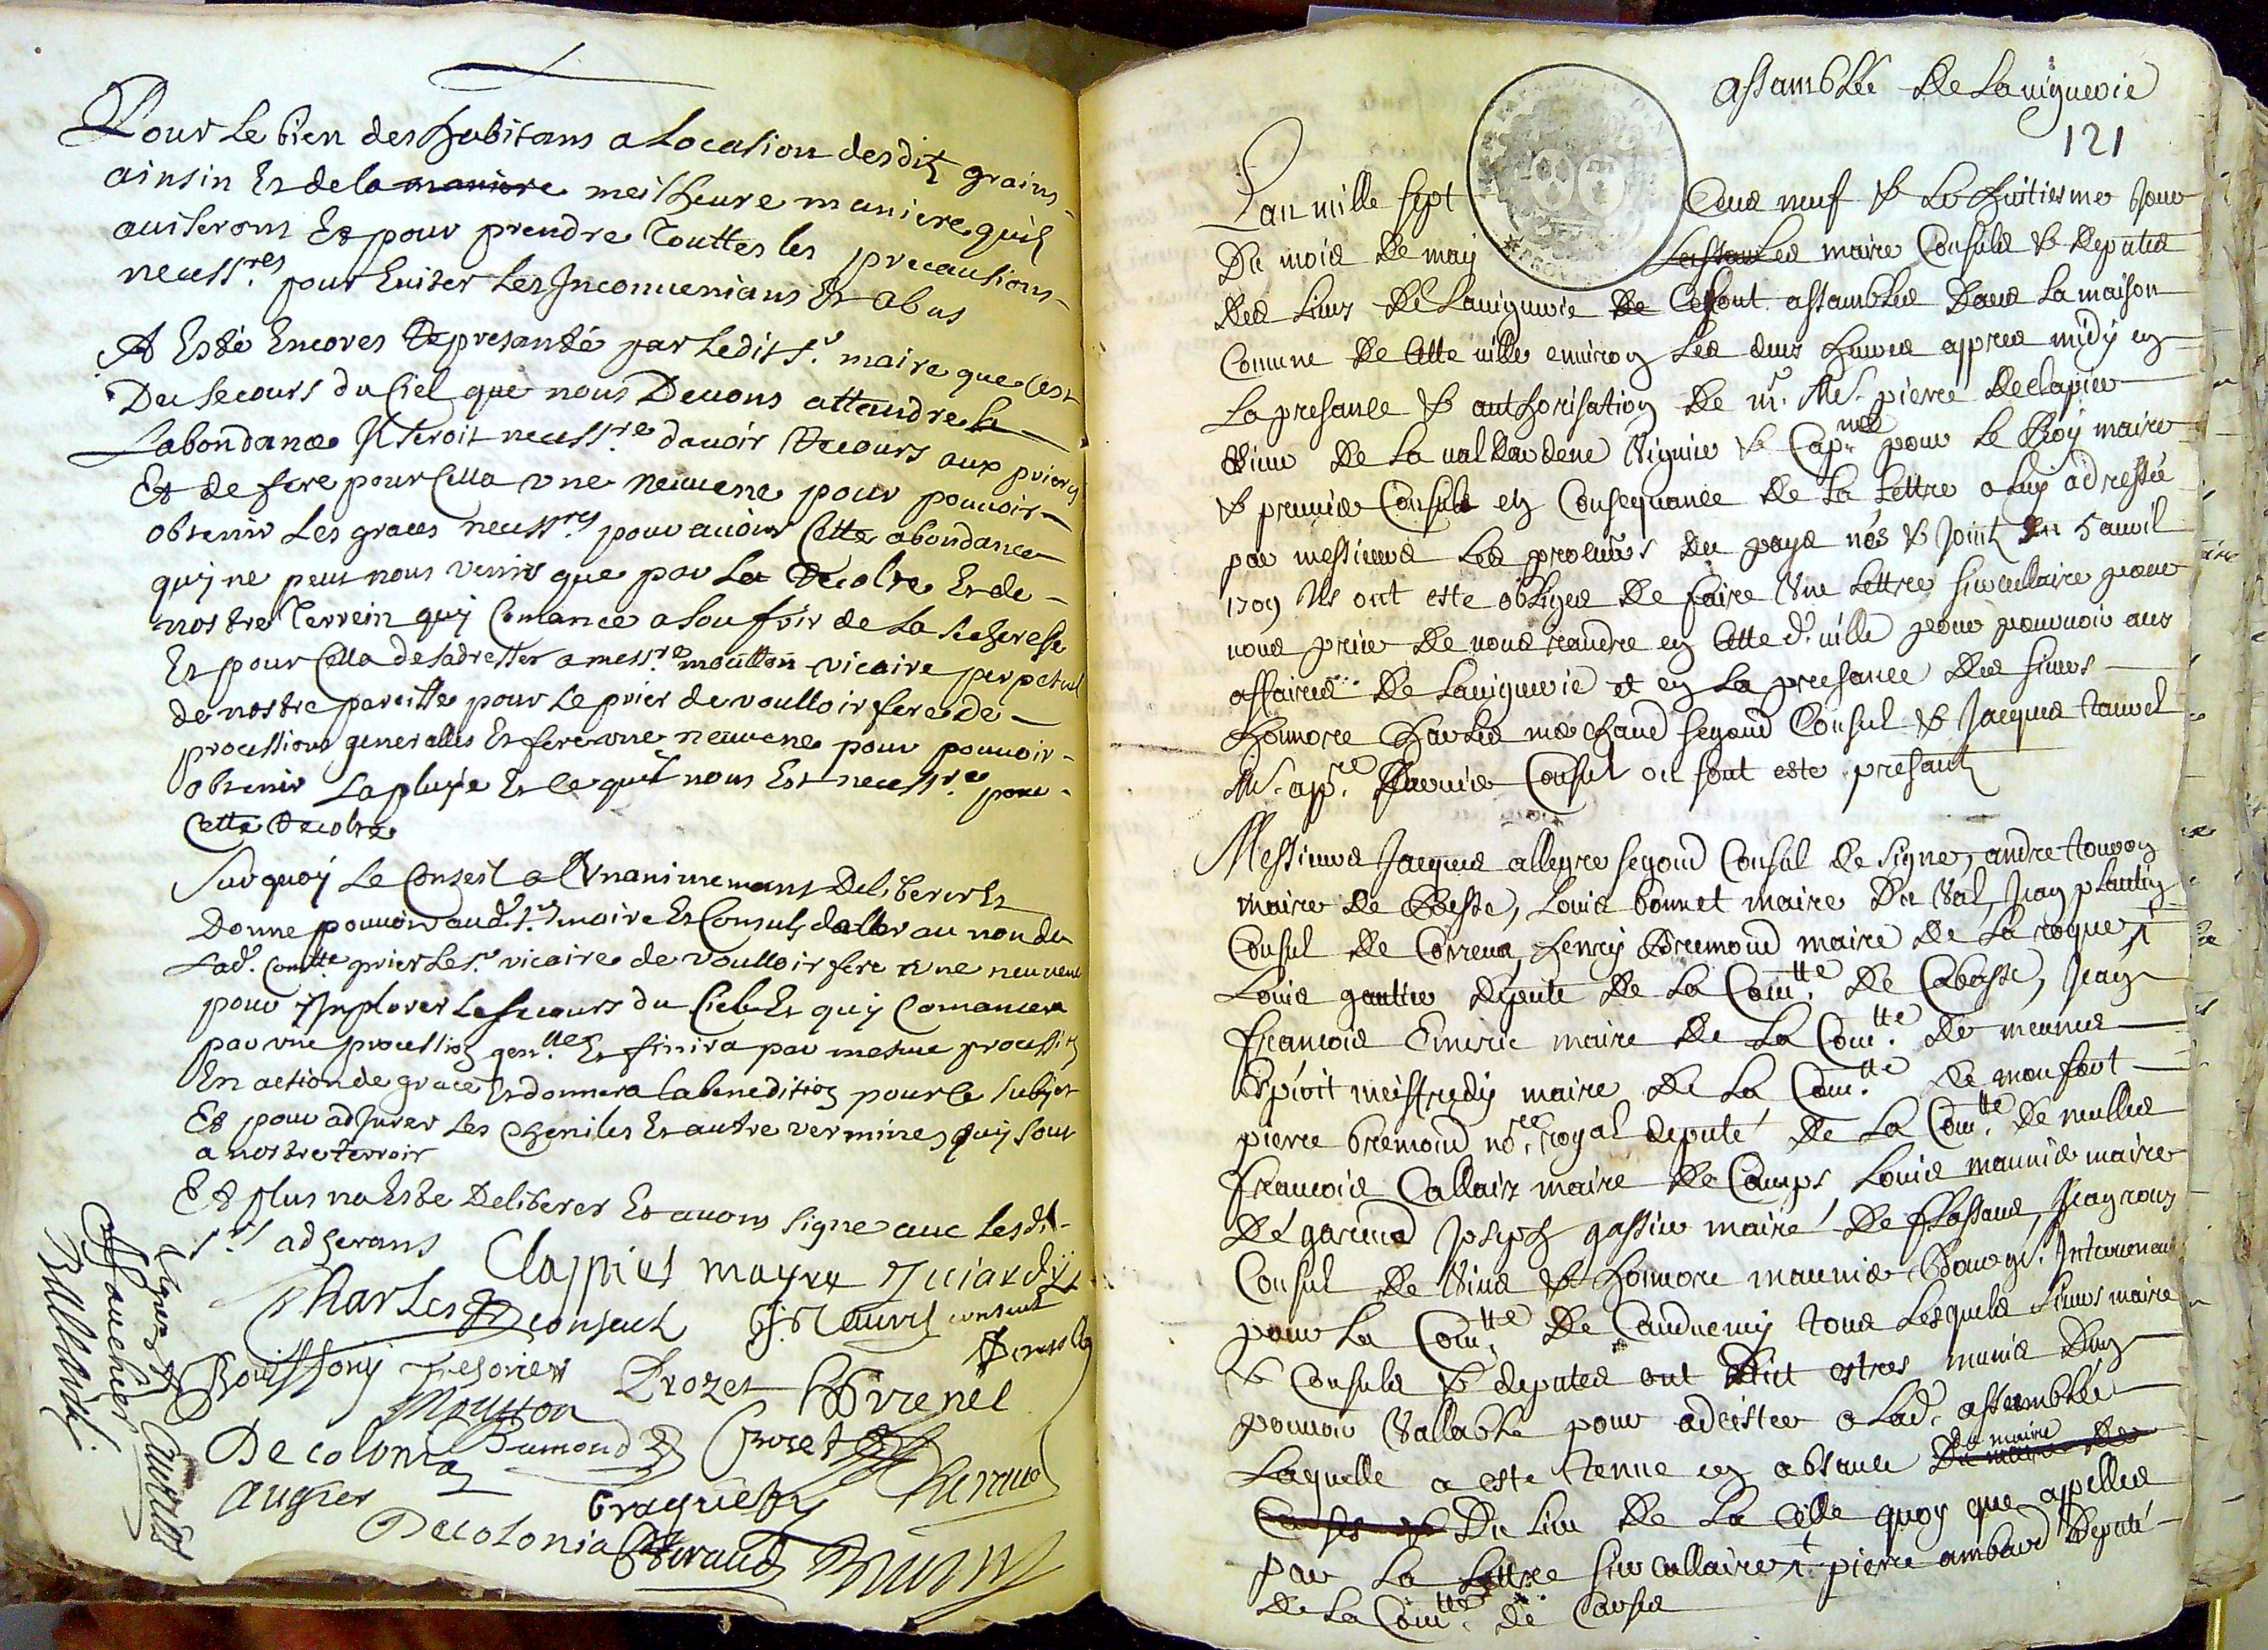 Pour le bien des habitans a locasion desdit grains
ainsin Et de la maniere meilheure maniere quils
auiseront Et pour prendre touttes les precausions
necessres pour Euiter les Inconuenians Et abus
A Esté Encores Represanté par ledit sr maire que cest
Du secours du Ciel que nous Deuons attandre le
Labondance Il seroit necessre dauoir Recours aux prieres
Et de fere pour Cella une neuuene pour pouuoir
obtenir les graces necessres pour auoir Cette abondance
quy ne peut nous venir que par la Recolte Et de
nostre Terrein quy Comance a soufrir de la secheresse
Et pour Cella de sadresser a messre moutton vicaire perpetuel
de nostre paroisse pour le prier de voulloir fere de
processions generalles Et fere une neuuene pour pouuoir
obtenir la pluye Et ce quil nous Est necessre pour
Cette Recolte
Sur quoy le Conseil a Unanimemant Deliberer Et
Donne pouuoir aud. srs maire Et Consuls daller au nom de
lad. Comtte prier le sr vicaire de voulloir fere une neuuene
pour Implorer le secours du Ciel Et quy Comancera
par une procession genlle Et finira par mesme procession
En action de grace Et donnera la benedition pour le subjet
Et pour adjurer les Cheniles Et autre vermines quy sont
a nostre terroir
Et plus na Este Deliberer Et auons signe auec lesdit
srs adherans
Clappiers mayre
Charles Consul
J. Tauvel consul
Bouisson Tesorier
Moutton
Drozet
Decolonia
Bremond
Augier
Braquety
Decolonia
Giraud
Assamblée de la viguerie
121
Lan mille sept Cens neuf & le huitiesme jour
Du mois de may les maire Consuls & deputes
des lieux de la viguerie de Ce sont assambles dans la maison
Comune de Cette ville environ les deux heures appres midy en
la presance & authorisation de mr Me pierre de Clapier
sieur de la val dardene Viguier & Capne pour le Roy maire
& premier Consul en Consequance de la lettre a luy adressée
par messieurs les procurs du pays nés & joints du 5 avril
1709 Ils ont este obliges de faire Une lettre sirculaire pour
nous prier de nous rendre en Cette d. ville pour pourvoir aux
affaires de la viguerie et en la presance des sieurs
honnore Charles marchand segond Consul & Jacques tauvel
Me apre dernier Consul ou sont este presants
Messieurs Jacques allegre segond Consul de signe, andre touron
maire de Besse, Louis bonnet maire du Val, Jean plantin
Consul de Correns, henry Bremond maire de la roque
Louis gautier depute de la Comtte de Cabasse, Jean
francois Emeric maire de la Comtte de meunes
Esprit meiffredy maire de la Comtte de monfort
pierre bremond nore royal deputé de la Comtte de mulles
francois Callais maire de Camps Louis maunier maire
de gareoud Joseph gassier maire de flassans, Jean roux
Consul de Vins & honnore maunier Bourgs. Intervenant
pour la Comtte de Candumy tous lesquels sieurs maire
& Consuls & deputes ont dict estres munis dun
pouvoir Vallable pour adcister a lad. assamblée
Laquelle a este tenue en absance du maire
Du lieu de la Celle quoy que appelles
par la lettre sirculaire pierre ambard deputé
de la Comtte de Carses